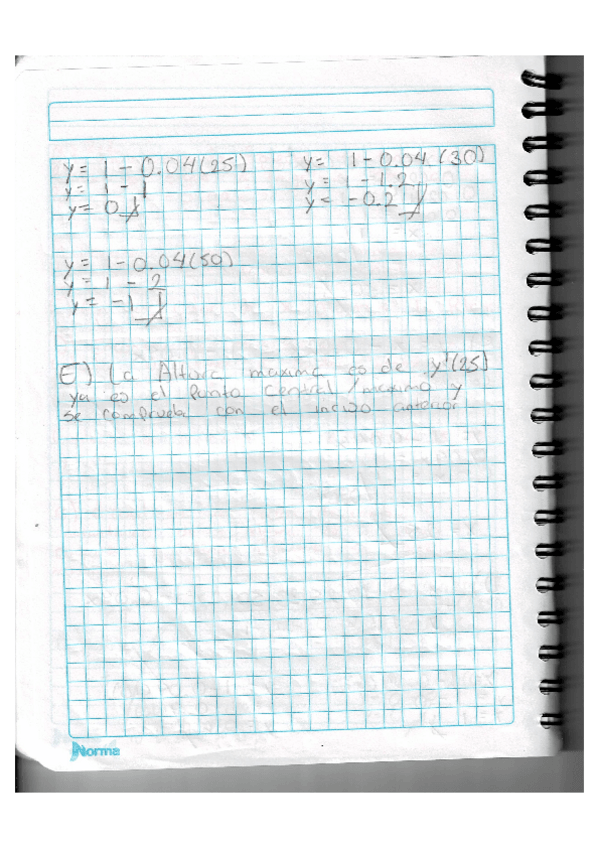 y = 1 - 0.04(25)
y = 1 - 1
y = 0
y = 1 - 0.04 (30)
y = 1 - 1.2
y = -0.2
y = 1 - 0.04(50)
y = 1 - 2
y = -1
E) La Altura maxima es de y'(25)
ya es el Punto Central/maximo y
se comprueba con el inciso anterior
Norma